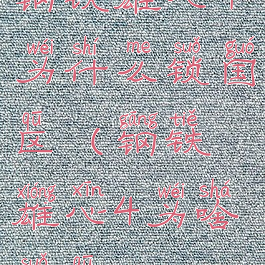 wèi shí me suǒ guó
为什么锁国
qū gāng tiě
区（钢铁
xióng xīn wèi shá
雄心4为啥